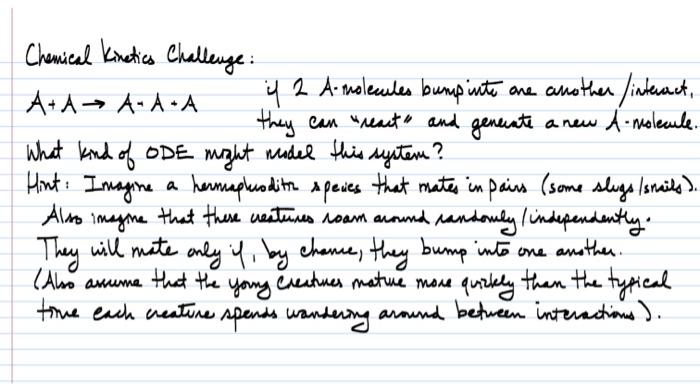 Chemical Kinetics Challenge:
A + A → A + A + A if 2 A-molecules bump into one another/interact,
they can "react" and generate a new A-molecule.
What kind of ODE might model this system?
Hint: Imagine a hermaphroditic species that mates in pairs (some slugs/snails).
Also imagine that these creatures roam around randomly/independently.
They will mate only if, by chance, they bump into one another.
(Also assume that the young creatures mature more quickly than the typical
time each creature spends wandering around between interactions).